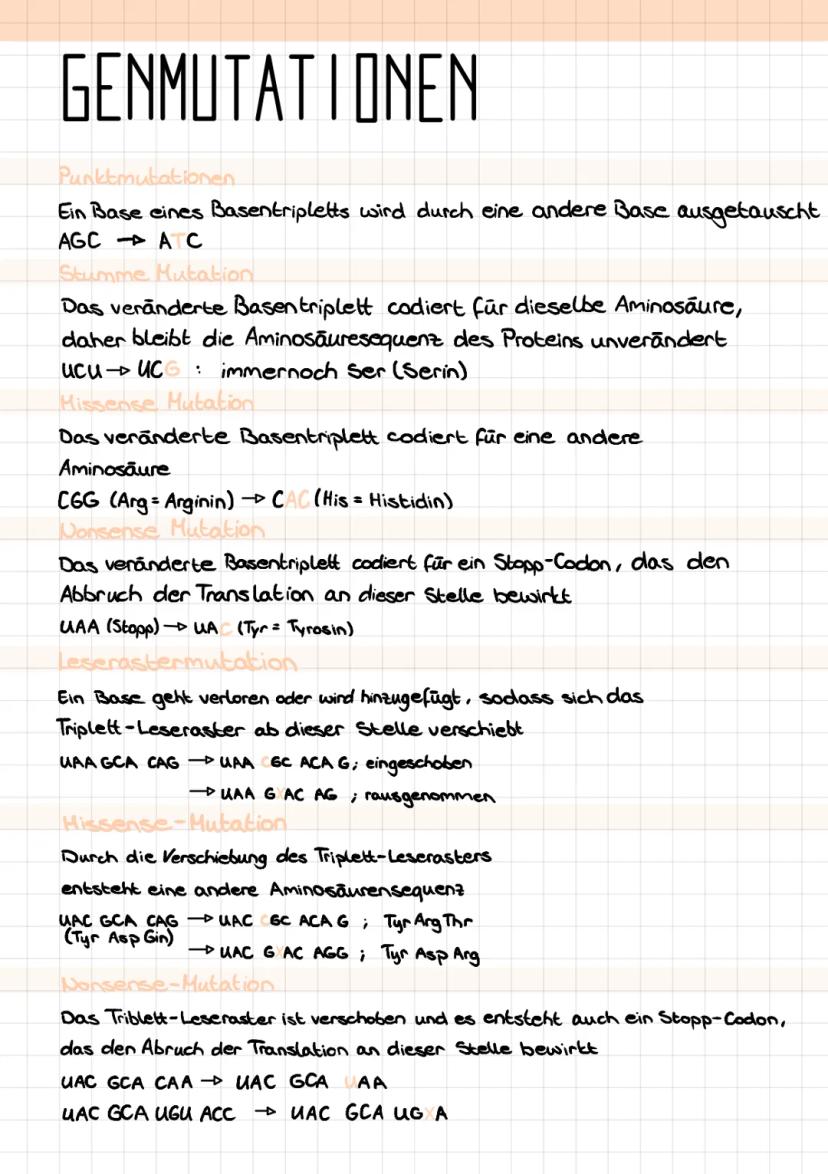 GENMUTATIONEN
Punktmutationen
Ein Base eines Basentripletts wird durch eine andere Base ausgetauscht
AGC → ATC
Stumme Mutation
Das veränderte Basentriplett codiert für dieselbe Aminosäure,
daher bleibt die Aminosäuresequenz des Proteins unverändert
UCU → UCG : immernoch Ser (Serin)
Missense Mutation
Das veränderte Basentriplett codiert für eine andere
Aminosäure
CGG (Arg = Arginin) → CAC (His = Histidin)
Nonsense Mutation
Das veränderte Basentriplett codiert für ein Stopp-Codon, das den
Abbruch der Translation an dieser Stelle bewirkt
UAA (Stopp) → UAC (Tyr = Tyrosin)
Leserastermutation
Ein Base geht verloren oder wird hinzugefügt, sodass sich das
Triplett-Leseraster ab dieser Stelle verschiebt
UAA GCA CAG → UAA CGC ACA G ; eingeschoben
→ UAA GXAC AG ; rausgenommen
Missense-Mutation
Durch die Verschiebung des Triplett-Leserasters
entsteht eine andere Aminosäurensequenz
UAC GCA CAG → UAC CGC ACA G ; Tyr Arg Thr
(Tyr Asp Gin)
→ UAC GXAC AGG ; Tyr Asp Arg
Nonsense-Mutation
Das Triblett-Leseraster ist verschoben und es entsteht auch ein Stopp-Codon,
das den Abruch der Translation an dieser Stelle bewirkt
UAC GCA CAA → UAC GCA UAA
UAC GCA UGU ACC → UAC GCA UGXA